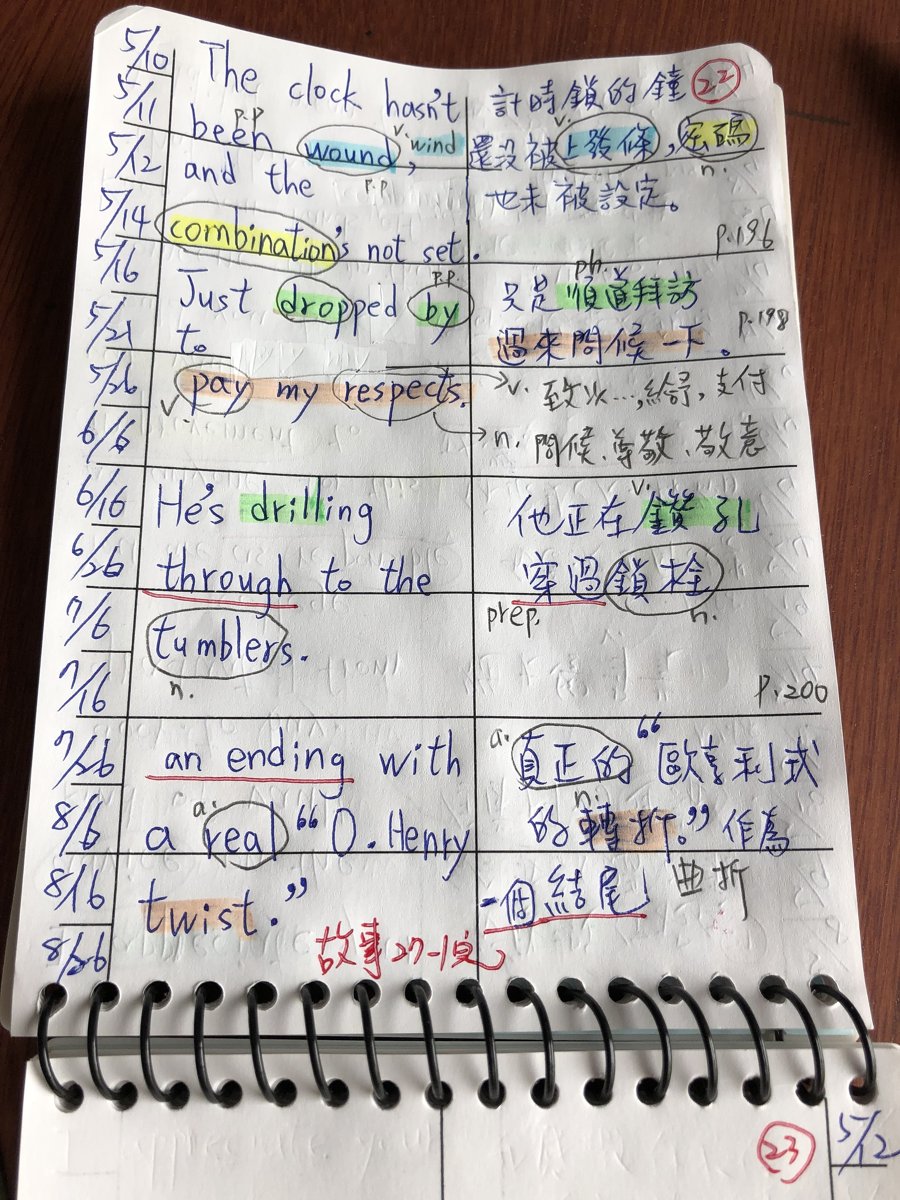 5/10
5/11
5/12
5/14
5/16
5/21
5/26
6/6
6/16
6/26
7/6
7/16
7/26
8/6
8/16
8/26
The clock hasn't
p.p.
been wound, v. wind
p.p.
and the
combination's not set.
計時鎖的鐘 22
v.
還没被上發條, 密碼
n.
也未被設定。
p.196
p.p.
Just dropped by
to
v. pay my respects.
ph.
只是順道拜訪
p.198
過來問候一下。
v. 致以…,給予,支付
n. 問候、尊敬、敬意
He's drilling
through to the
tumblers.
n.
v.
他正在鑽孔
穿過鎖栓
prep. n.
p.200
an ending with
a.
a real "O. Henry
twist."
a.
真正的 "歐亨利式
n.
的轉折。" 作為
一個結尾 曲折
故事27-1完
23
5/12